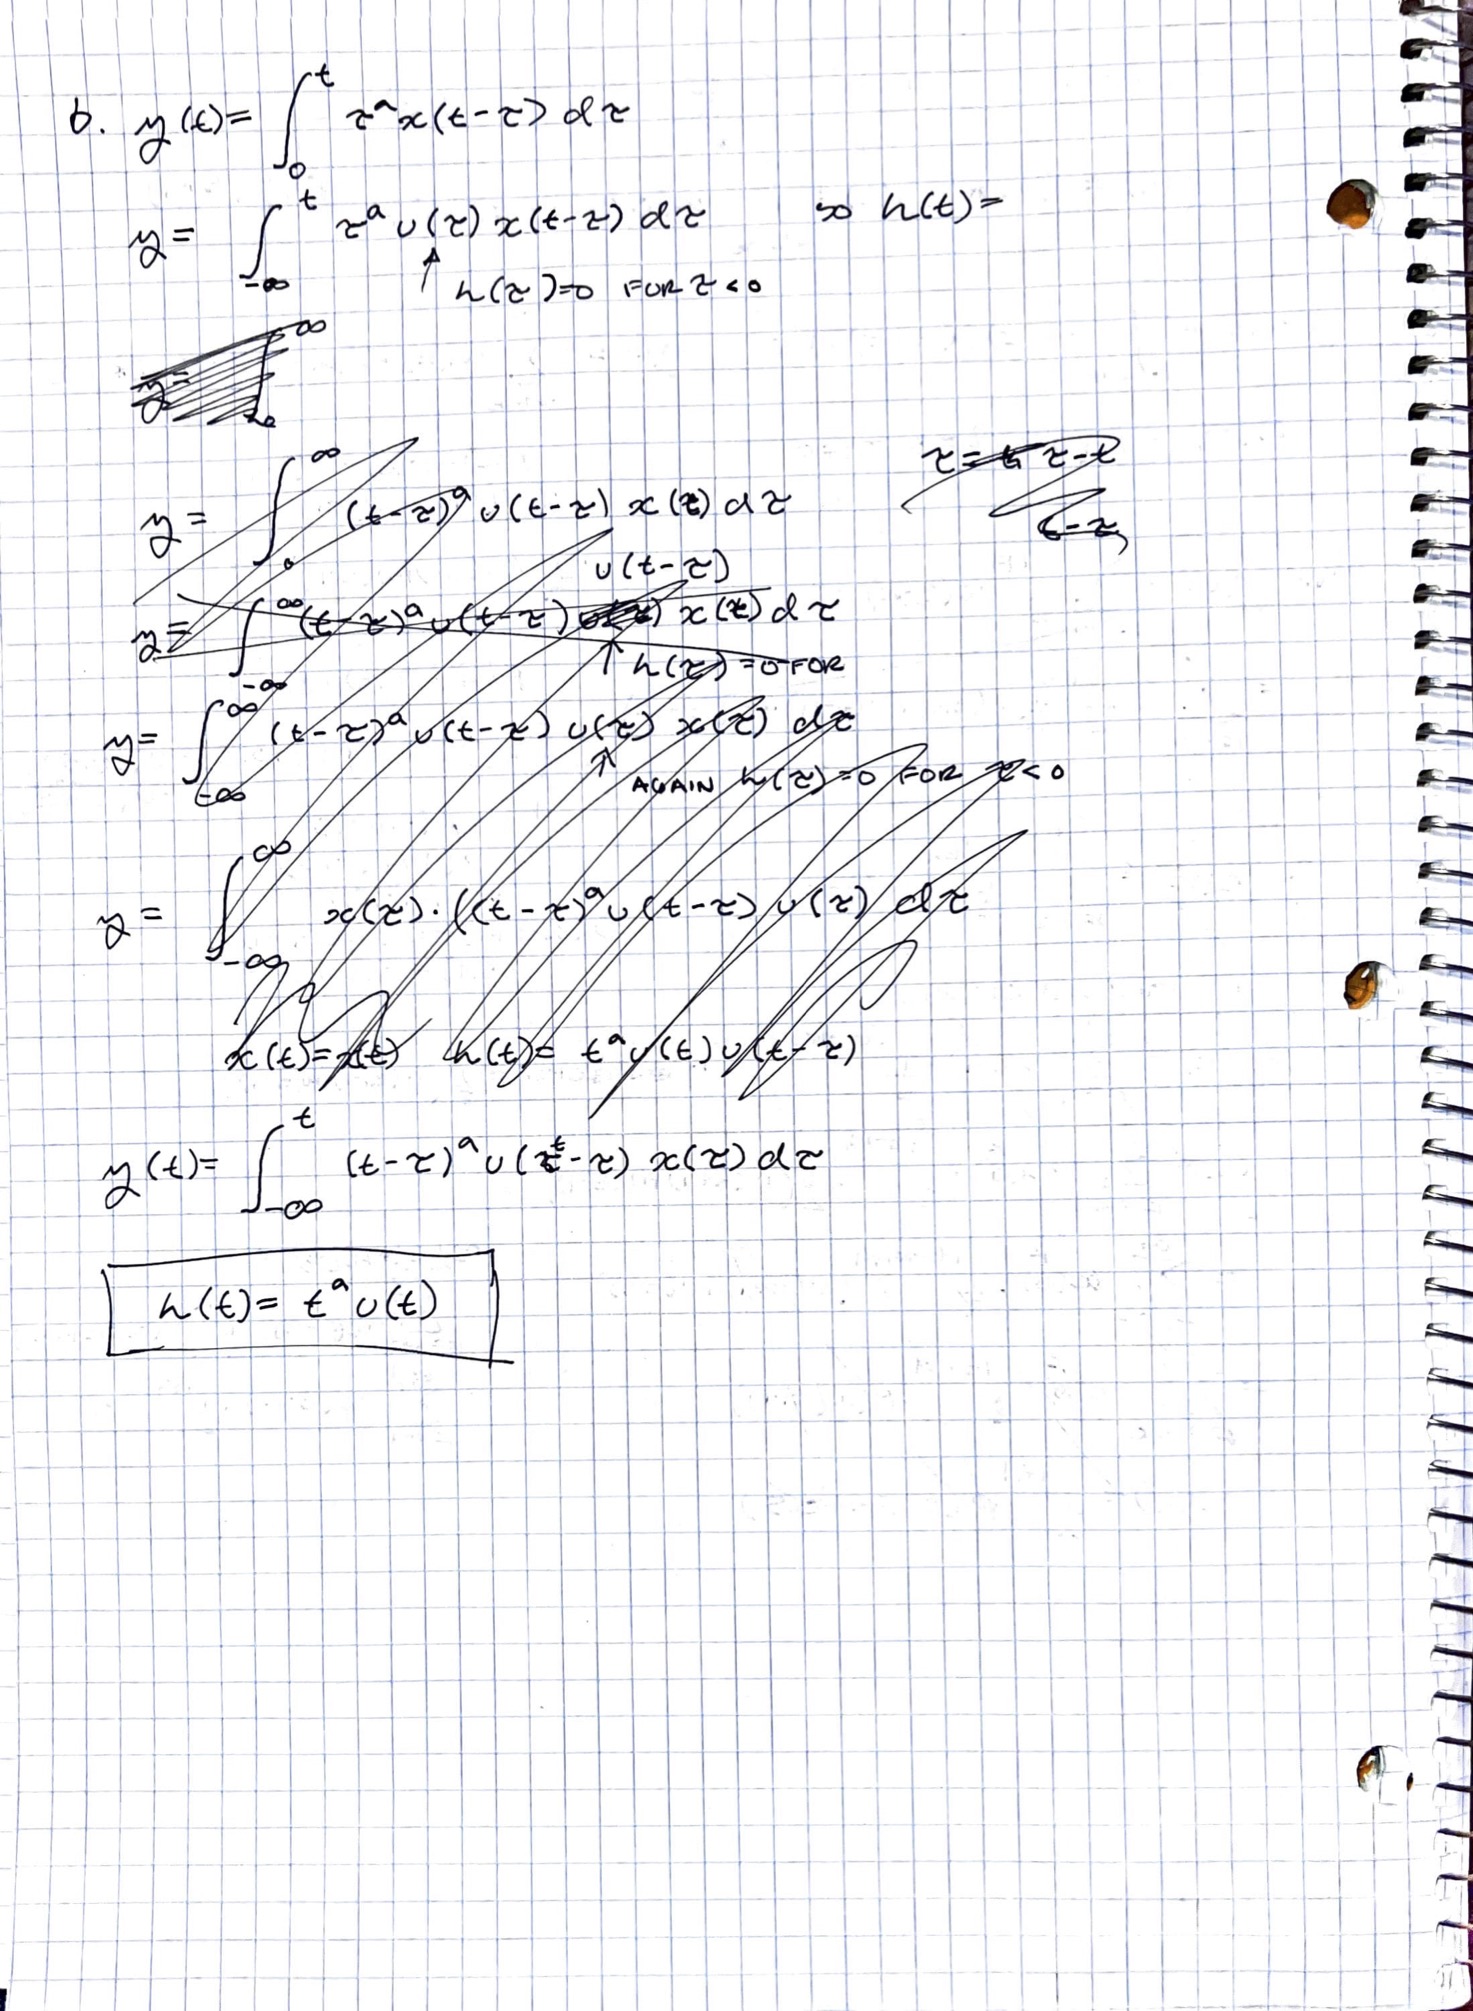 b. y(t) = ∫₀ᵗ τᵃ x(t-τ) dτ
y = ∫₋∞ᵗ τᵃ u(τ) x(t-τ) dτ so h(t) =
↑ h(τ)=0 FOR τ<0
y = ∫ ∞
y = ∫₀^∞ (t-τ)ᵃ u(t-τ) x(τ) dτ
u(t-τ)
y = ∫₋∞^∞ (t-τ)ᵃ u(t-τ) x(τ) dτ
↑ h(τ) = 0 FOR
y = ∫₋∞^∞ (t-τ)ᵃ u(t-τ) u(τ) x(τ) dτ
↑ AGAIN h(τ)=0 FOR τ<0
y = ∫₋∞^∞ x(τ)·((t-τ)ᵃ u(t-τ) u(τ) dτ
x(t)=x(t) h(t)= tᵃ u(t) u(t-τ)
y(t) = ∫₋∞ᵗ (t-τ)ᵃ u(t-τ) x(τ) dτ
h(t) = tᵃ u(t)